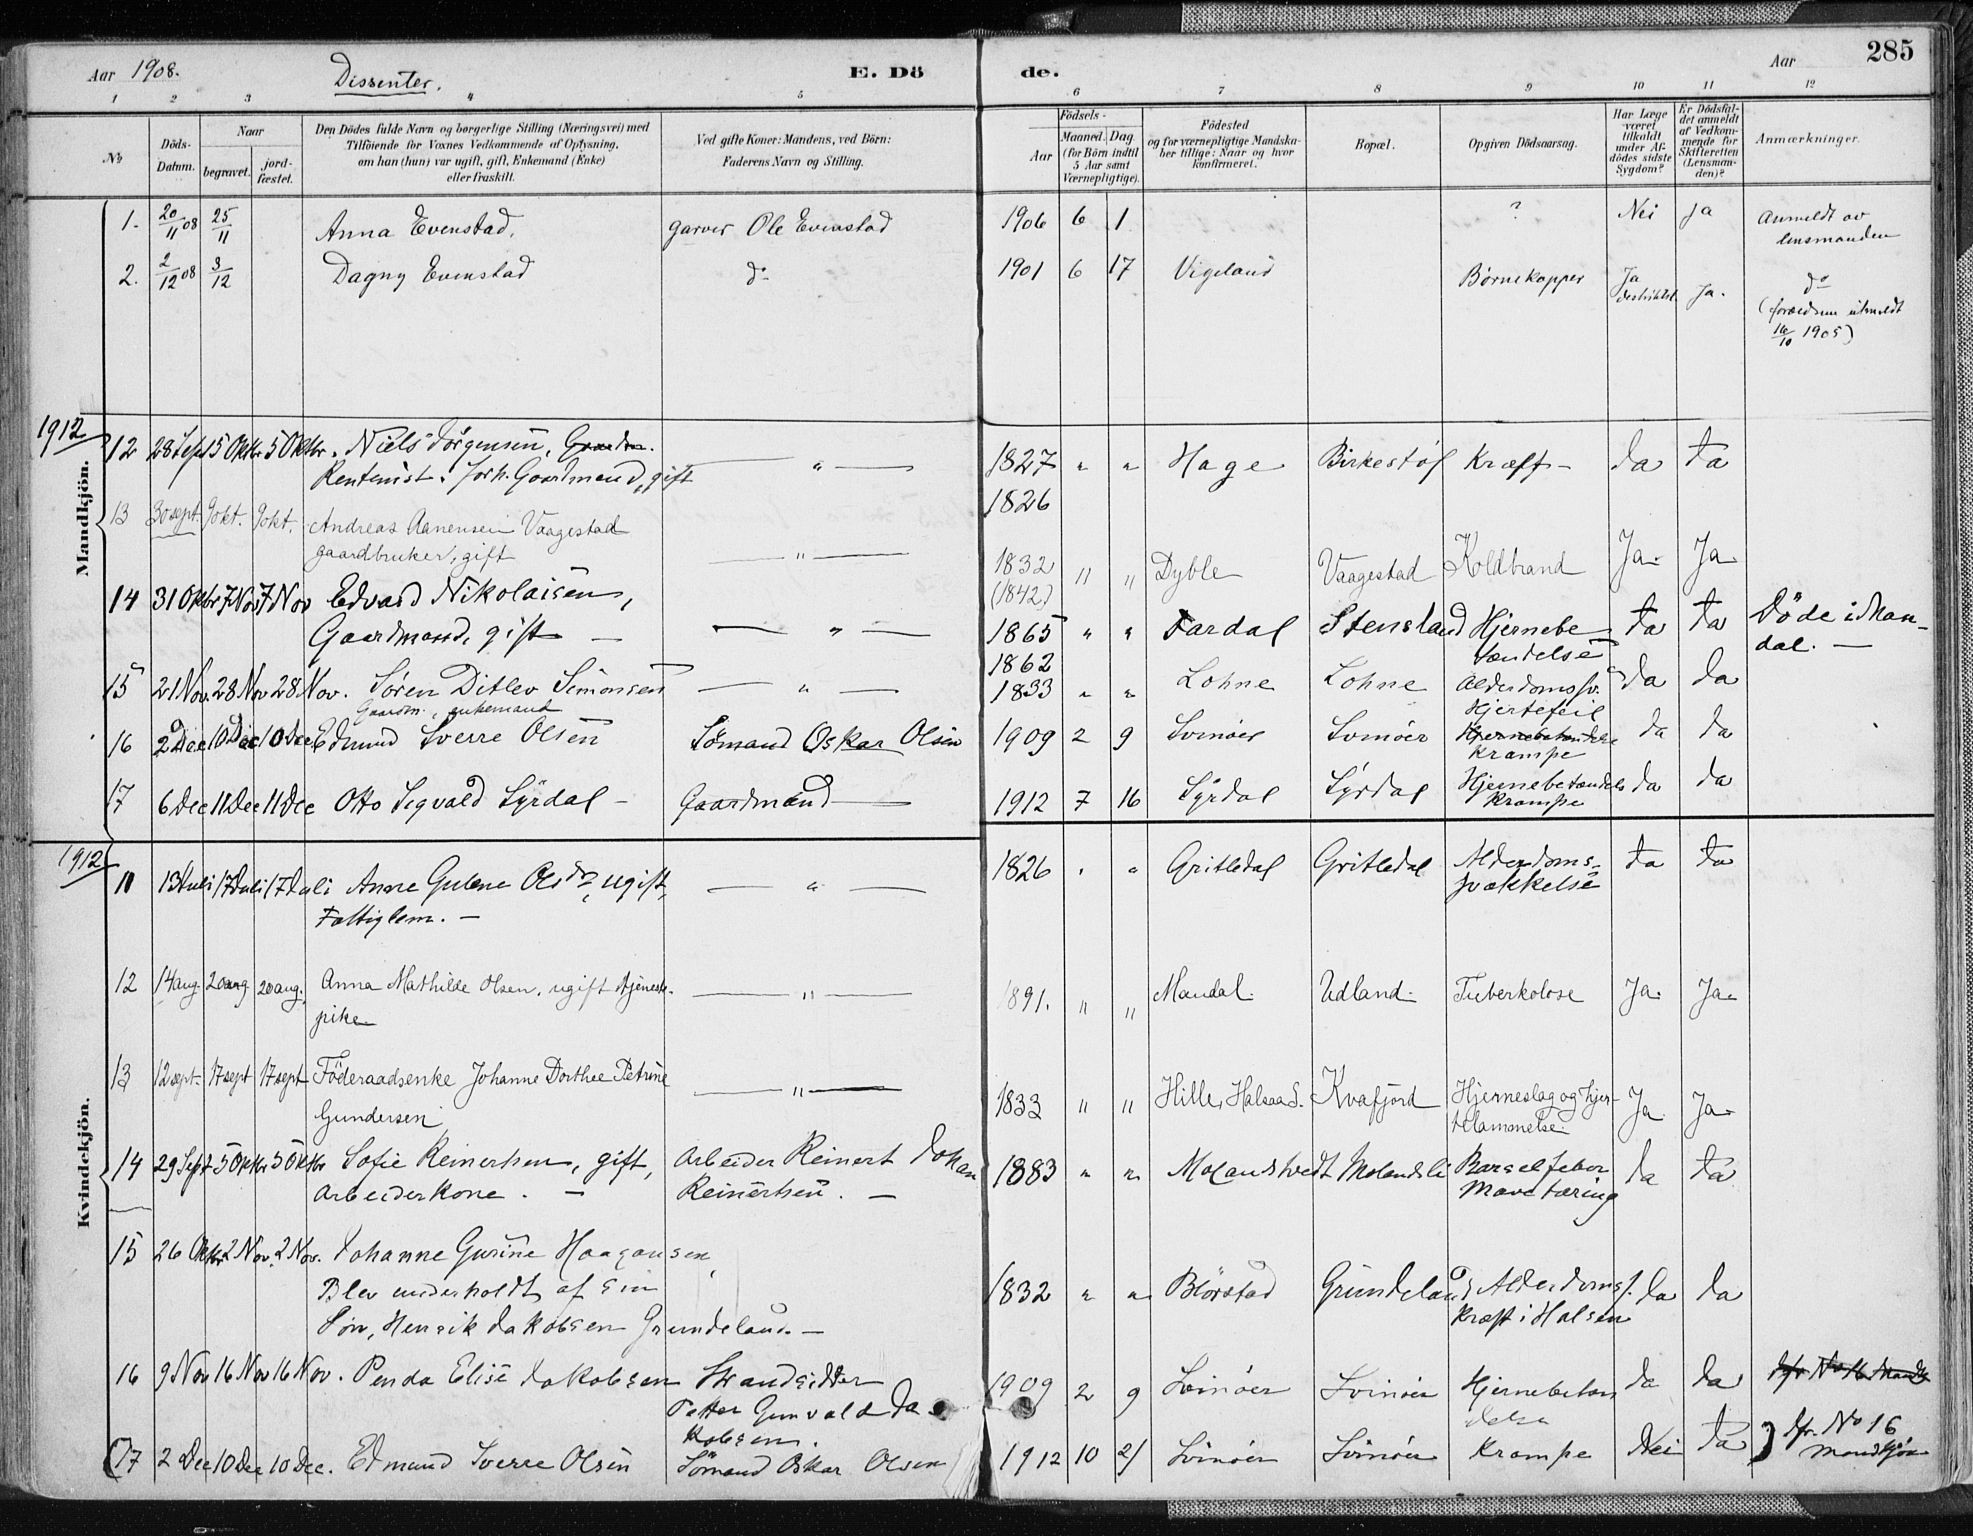 Aar 1908.
Dissenter.
E. Dö
de.
Aar
285
1 2 3 4 5 6 7 8 9 10 11 12
No
Döds-Datum.
Naar
begravet.
jord-fæstet.
Den Dödes fulde Navn og borgerlige Stilling (Næringsvei) med
Tilföiende for Voxnes Vedkommende af Oplysning,
om han (hun) var ugift, gift, Enkemand (Enke)
eller fraskilt.
Ved gifte Koner: Mandens, ved Börn:
Faderens Navn og Stilling.
Födsels-
Aar
Maaned. Dag
(for Börn indtil
5 Aar samt
Værnepligtige).
Födested
og for værnepligtige Mandska-
ber tillige: Naar og hvor
konfirmeret.
Bopæl.
Opgiven Dödsaarsag.
Har Læge
været
tilkaldt
under Af-
dödes sidste
Sygdom?
Er Dödsfal-
det anmeldt
af Vedkom-
mende for
Skifteretten
(Lensman-
den)?
Anmærkninger.
Mandkjön.
1. 20/11 08 25/11 Anna Evenstad, garver Ole Evenstad 1906 6 1 ? Nei Ja Anmeldt av
lensmanden
2. 2/12 08 3/12 Dagny Evenstad do 1901 6 17 Vigeland Börnekopper Ja Ja. do
(forældrene utmeldt
16/10 1905)
1912
12 28 Sept 5 Oktbr 5 Oktbr. Niels Jörgensen, Gaardm. " 1827 " " Hage Birkestöl Kræft - Ja Ja
Rentenist. forh. Gaardmand, gift
1826
13 30 sept. 9 okt. 9 okt. Andreas Aanensen Vaagestad
gaardbruker, gift " 1832 " " Dyble Vaagestad Koldbrand Ja Ja
(1842)
14 31 Oktbr 7 Nov 7 Nov Edvard Nikolaisen,
Gaardmand, gift - " 1865 " " Jardal Stensland Hjernebe-
tændelse Ja Ja Döde i Man-
dal. -
1862
15 21 Nov. 28 Nov 28 Nov. Sören Ditlev Simonsen " 1833 " " Lohne Lohne Alderdomssv. Ja Ja
Gaardm., enkemand
Hjertefeil
16 2 Dec 10 Dec 10 Dec Edmund Sverre Olsen Sömand Oskar Olsen 1909 2 9 Svinöer Svinöer Hjernebetændelse Ja Ja
Krampe
17 6 Dec 11 Dec 11 Dec Otto Sigvald Syrdal - Gaardmand 1912 7 16 Syrdal Syrdal Hjernebetændels Ja Ja
Krampe
Kvindekjön.
1912
11 13 Juli 17 Juli 17 Juli Anne Gulene Olsdr, ugift, " 1826 " " Gritledal Gritledal Alderdoms- Ja Ja
Fattiglem. - svækkelse
12 14 aug 20 aug 20 aug. Anna Mathilde Olsen, ugift tjeneste-
pike " 1891. " " Mandal. Udland. Tuberkolose Ja. Ja.
13 12 sept. 17 sept 17 sept Föderaadsenke Johanne Dorthee Petrine
Gundersen " 1833 " " Hille, Halsaa s. Kvafjord Hjerneslag og hjer-
telammelse. Ja Ja
14 29 Sept 5 Oktbr 5 Oktbr Sofie Reinertsen, gift, Arbeider Reinert Johan 1883 " " Molandsvedt Molandsli Barselfeber Ja Ja
Arbeiderkone. - Reinertsen. - Mavetæring
15 26 Oktbr 2 Nov. 2 Nov. Johanne Gurine Haagonsen,
Blev underholdt af sin 1832 " " Blörstad Grundeland Alderdomsf. Ja Ja
Sön, Henrik Jakobsen Grundeland. - Kræft i Halsen
16 9 Nov 16 Nov 16 Nov. Penda Elise Jakobsen Strandsidder
Petter Gunvald Ja-
kobsen. 1909 2 9 Svinöer Svinöer Hjernebetæn
delse Ja Ja
(17 2 Dec 10 Dec 10 Dec. Edmund Sverre Olsen Sömand Oskar Olsen 1912 10 21 Svinöer Svinöer Krampe Nei Ja ) Jfr. No 16
Mandkjön